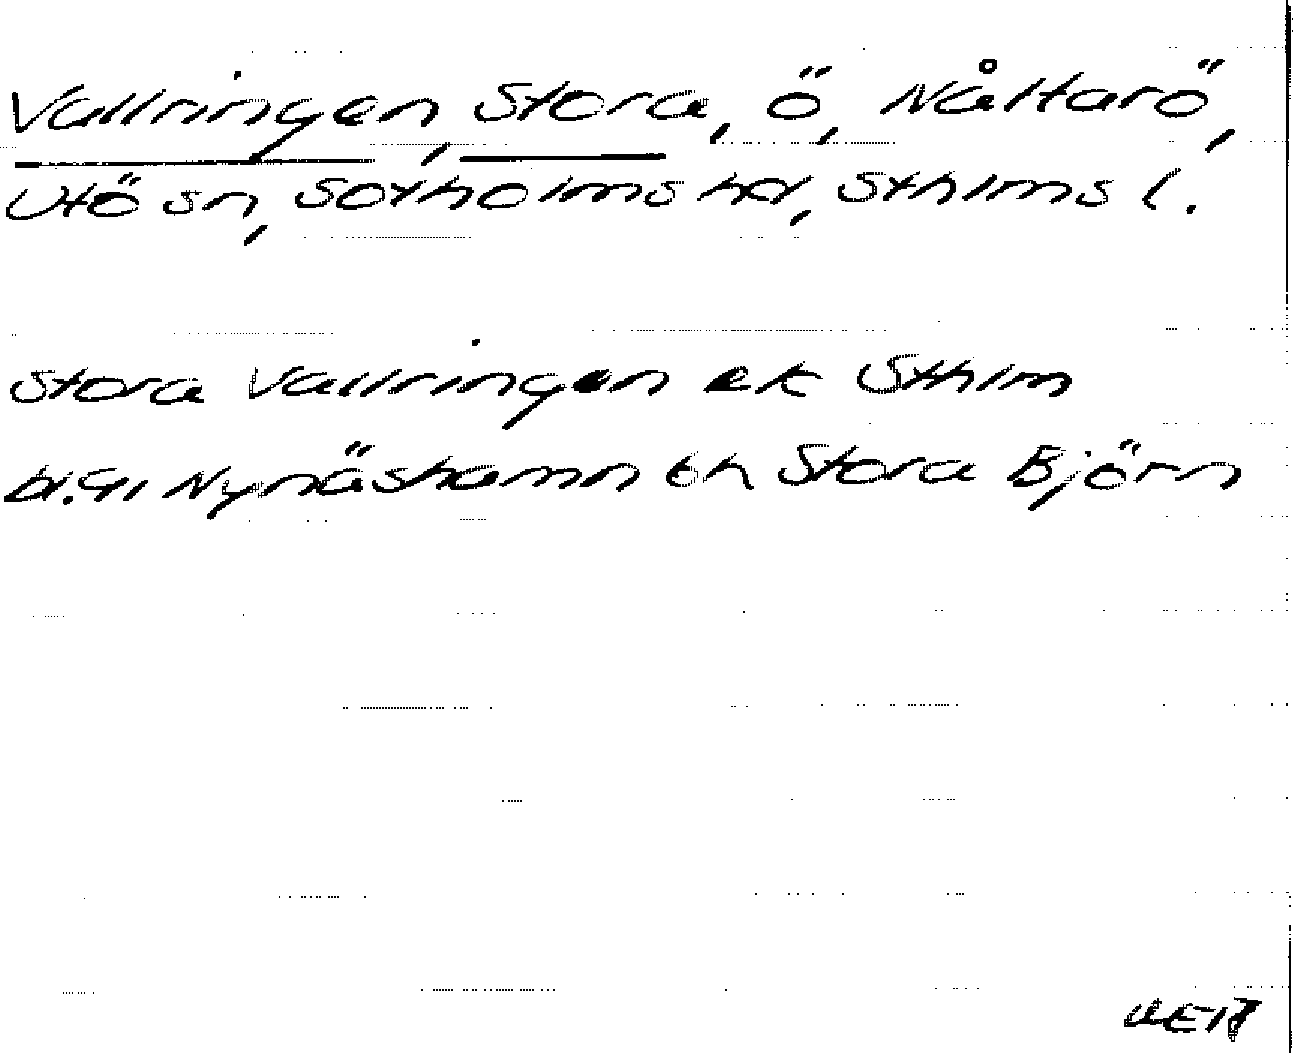 Vallringen, Stora, ö, Nåltarö,
Utö sn, Sotholms hd, Sthlms l.
Stora Vallringen ek Sthlm
bl. 91 Nynäshamn bh Stora Björn